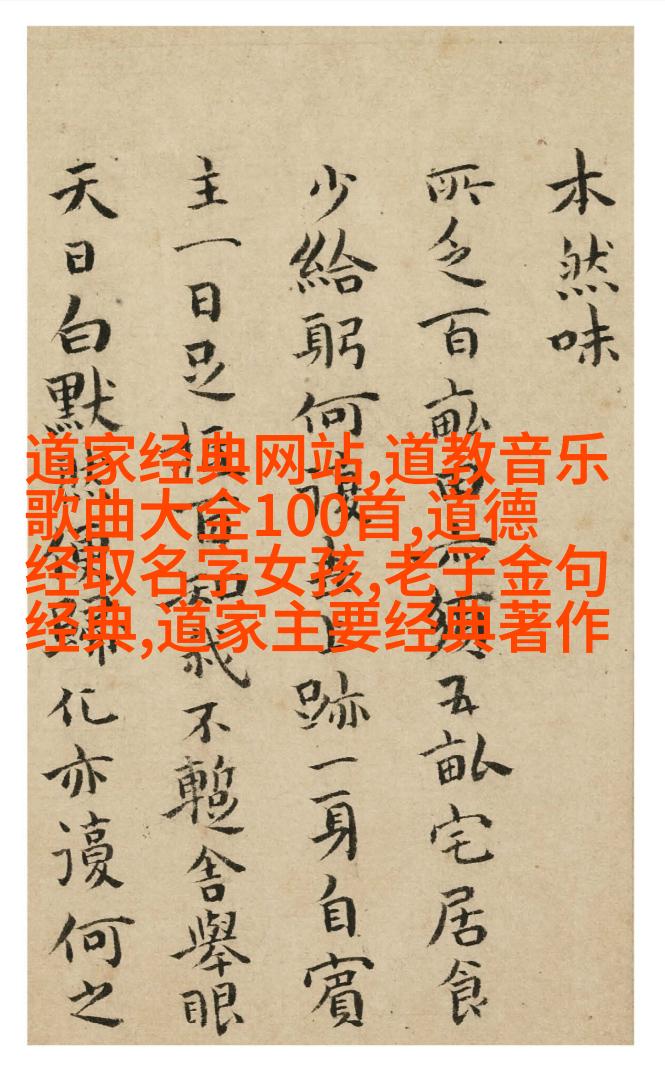 本然味
所乏百畝焉須五畝宅居食
少給躬何復跡一身自賓
主一日足百知我不暫舍舉眼
天日白默默歸化亦復何之
道家经典网站,道教音乐
歌曲大全100首,道德
经取名字女孩,老子金句
经典,道家主要经典著作